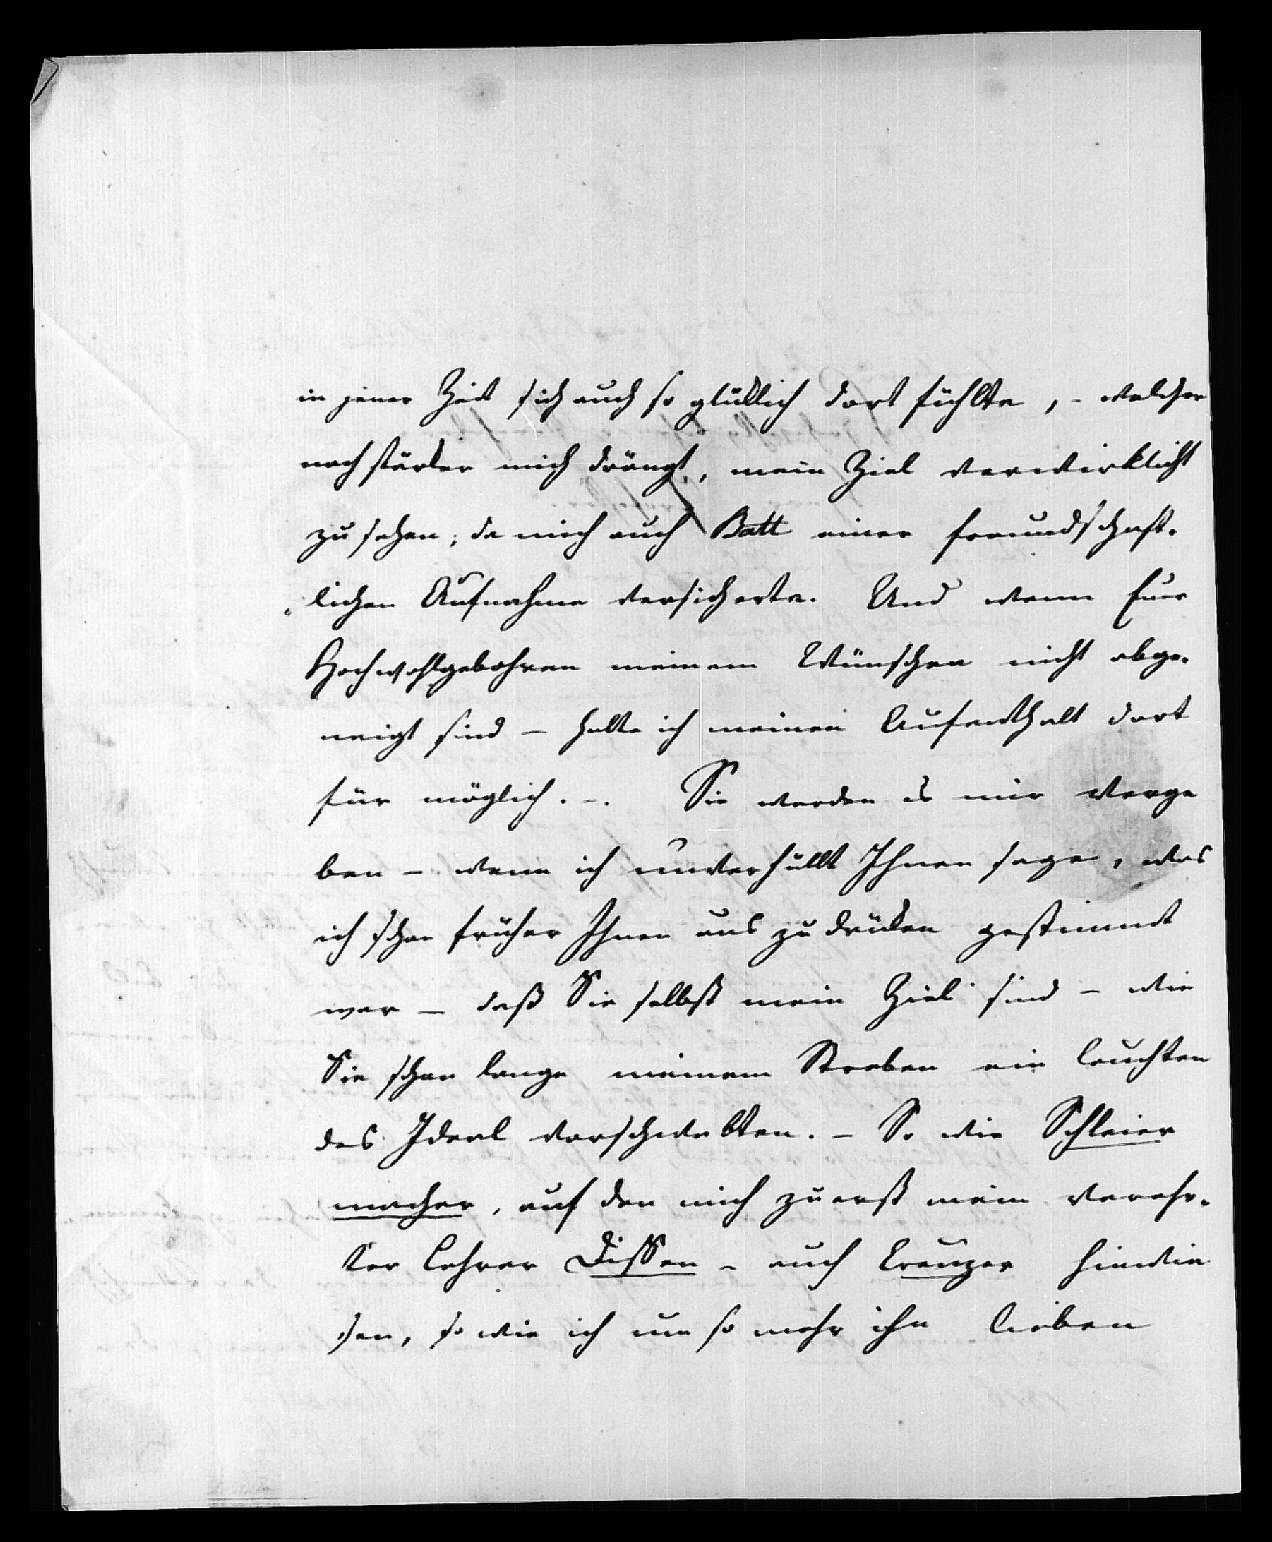 in jener Zeit sich auch so glüklich dort fühlte, - welcher
noch stärker mich drängt, mein Ziel verwirklicht
zu sehen, da mich auch Batt einer freundschaft-
lichen Aufnahme versicherte. Und wenn Euer
Hochwohlgebohren meinem Wünschen nicht abge-
neigt sind – halte ich meinen Aufenthalt dort
für möglich. -. Sie werden es mir verge
ben – wenn ich unverhüllt Ihnen sage, was
ich schon früher Ihnen aus zu drüken gestimmt
war – daß Sie selbst mein Ziel sind – wie
Sie schon lange meinem Streben ein leuchten
des Ideal vorschwebten. – So wie Schleier
macher, auf den mich zuerst mein verehr-
ter Lehrer Dissen – auch Creuzer hinwie
sen, so wie ich um so mehr ihn lieben